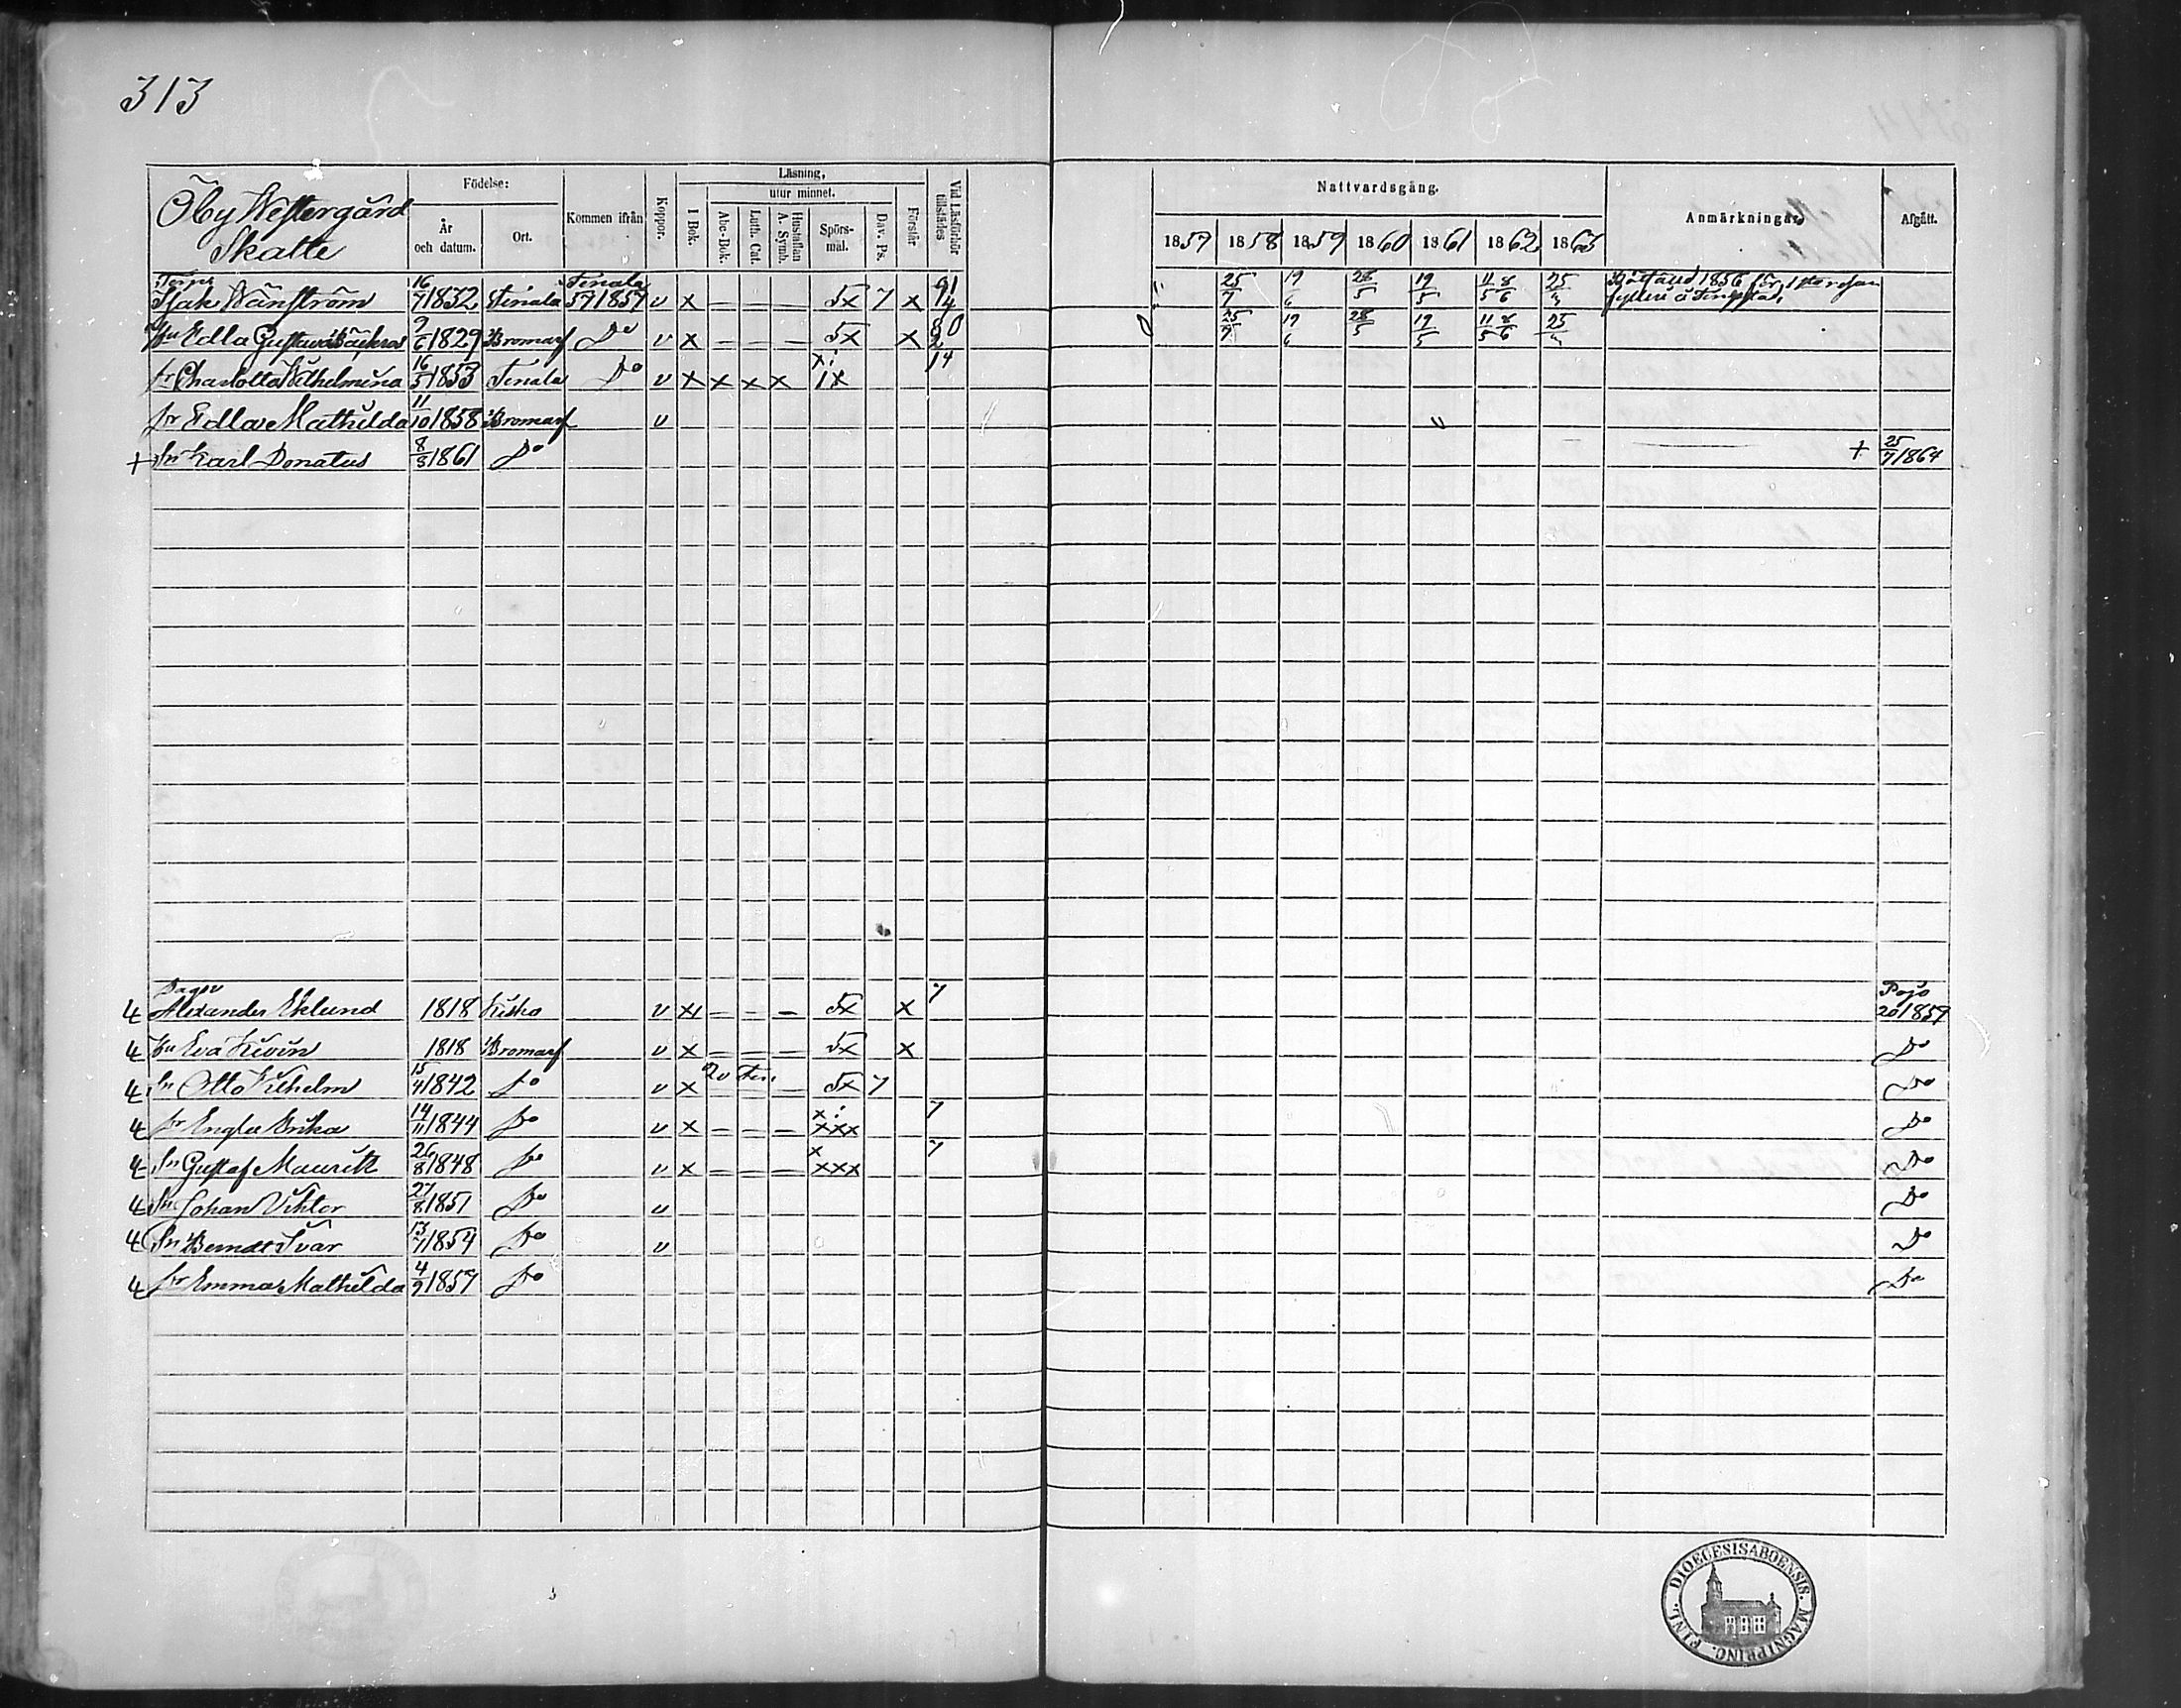 313
Öby Westergård
Skatte
Födelse:
År och datum.
Ort.
Kommen ifrån
Koppor.
Läsning,
utur minnet.
I Bok.
Abc-Bok.
Luth. Cat.
Hustaflan A. Symb.
Spörs-mål.
Dav. Ps.
Förstår
Vid Läsförhör tillstädes
Nattvardsgång.
1857 1858 1859 1860 1861 1862 1863
Anmärkningar,
Afgått.
Torpr Isak Wänström 16/7 1832 Tenala Tenala 57 1857 v x — — — 5x 7 x 25/7 19/6 28/5 19/5 11/5 8/6 25/
Hu Edla Gustava 9/6 1829 Bromarf Do v x — — — 5x x 25/7 19/6 28/5 19/5 11/5 8/6 25/
dr Charlotta Wilhelmina 16/5 1853 Tenala Do v x x x x 1x 14
dr Edla Mathilda 11/10 1858 Bromarf v
+ Sn Karl Donatus 8/8 1861 Do + 25/7 1864
4 Dagsv Alexander Eklund 1818 Kisko v x — — — 5x x 7 Pojo 20 1859
4 Hu Eva 1818 Bromarf v x — — — 5x x Do
4 Sn Otto Vilhelm 15/11 1842 Do v x — 5x 7 Do
4 dr Engla Erika 14/11 1844 Do v x — — — xxx 7 Do
4 Sn Gustaf Maurits 26/8 1848 Do v x — — — xxx 7 Do
4 Sn Johan Viktor 27/8 1851 Do v Do
4 Sn Berndt Ivar 13/7 1854 Do v Do
4 dr Emma Mathilda 4/9 1857 Do Do
DIOECESIS ABOENSIS. MAGNI PRINC. FINL.